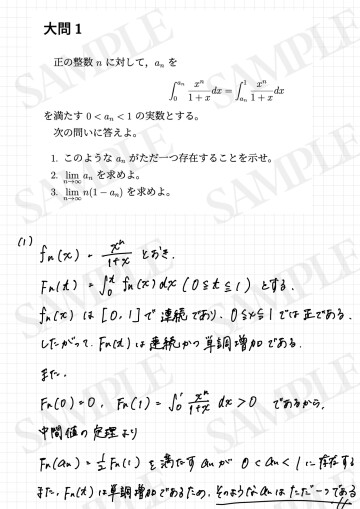 大問 1
正の整数 n に対して，a_n を
∫_0^{a_n} x^n/(1+x) dx = ∫_{a_n}^1 x^n/(1+x) dx
を満たす 0 < a_n < 1 の実数とする。
次の問いに答えよ。
1. このような a_n がただ一つ存在することを示せ。
2. lim_{n→∞} a_n を求めよ。
3. lim_{n→∞} n(1 − a_n) を求めよ。
(1) f_n(x) = x^n/(1+x) とおき、
F_n(t) = ∫_0^t f_n(x) dx (0≦t≦1) とする。
f_n(x) は [0,1] で連続であり、0≦x≦1 では正である。
したがって、F_n(t) は連続かつ単調増加である。
また、
F_n(0)=0, F_n(1) = ∫_0^1 x^n/(1+x) dx > 0 であるから、
中間値の定理より
F_n(a_n) = 1/2 F_n(1) を満たす a_n が 0<a_n<1 に存在する
また、F_n(t) は単調増加であるため、そのような a_n はただ一つである
SAMPLE
SAMPLE
SAMPLE
SAMPLE
SAMPLE
SAMPLE
SAMPLE
SAMPLE